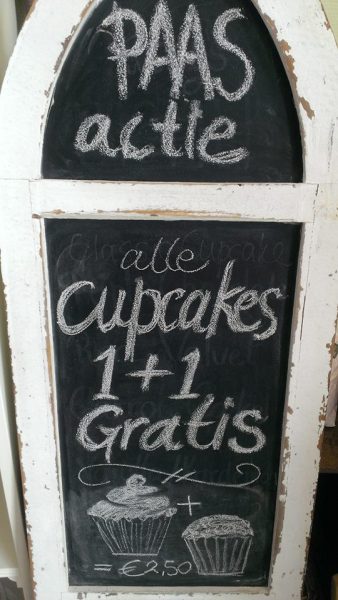 PAAS
actie
alle
Cupcakes
1+1
Gratis
+
= €2,50